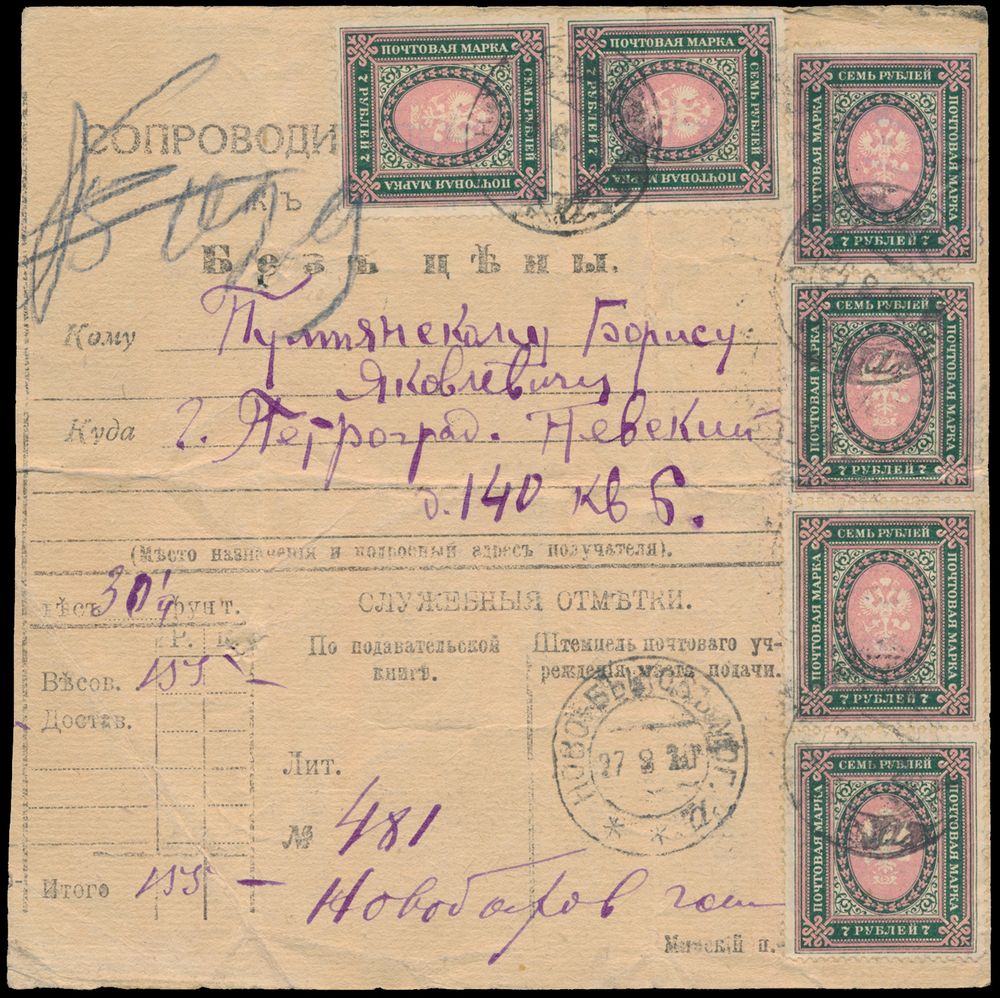 ПОЧТОВАЯ МАРКА
СЕМЬ РУБЛЕЙ
7 РУБЛЕЙ 7
ПОЧТОВАЯ МАРКА
ПОЧТОВАЯ МАРКА
СЕМЬ РУБЛЕЙ
7 РУБЛЕЙ 7
ПОЧТОВАЯ МАРКА
СЕМЬ РУБЛЕЙ
ПОЧТОВАЯ МАРКА
ПОЧТОВАЯ МАРКА
7 РУБЛЕЙ 7
СОПРОВОДИ
КЪ
Безъ цѣны.
СЕМЬ РУБЛЕЙ
ПОЧТОВАЯ МАРКА
ПОЧТОВАЯ МАРКА
7 РУБЛЕЙ 7
Кому Борису
Яковлевичу
Куда г. Петроград. Невский
д. 140 кв 6.
(Мѣсто назначенія и подробный адресъ получателя).
СЕМЬ РУБЛЕЙ
ПОЧТОВАЯ МАРКА
ПОЧТОВАЯ МАРКА
7 РУБЛЕЙ 7
вѣсъ 30 фунт.
СЛУЖЕБНЫЯ ОТМѢТКИ.
Р. К.
По подавательской
книгѣ.
Штемпель почтоваго уч-
режденія мѣста подачи.
Вѣсов. 155 -
Достав.
27 8 20
Лит.
№ 481
Итого 155 -
СЕМЬ РУБЛЕЙ
ПОЧТОВАЯ МАРКА
ПОЧТОВАЯ МАРКА
7 РУБЛЕЙ 7